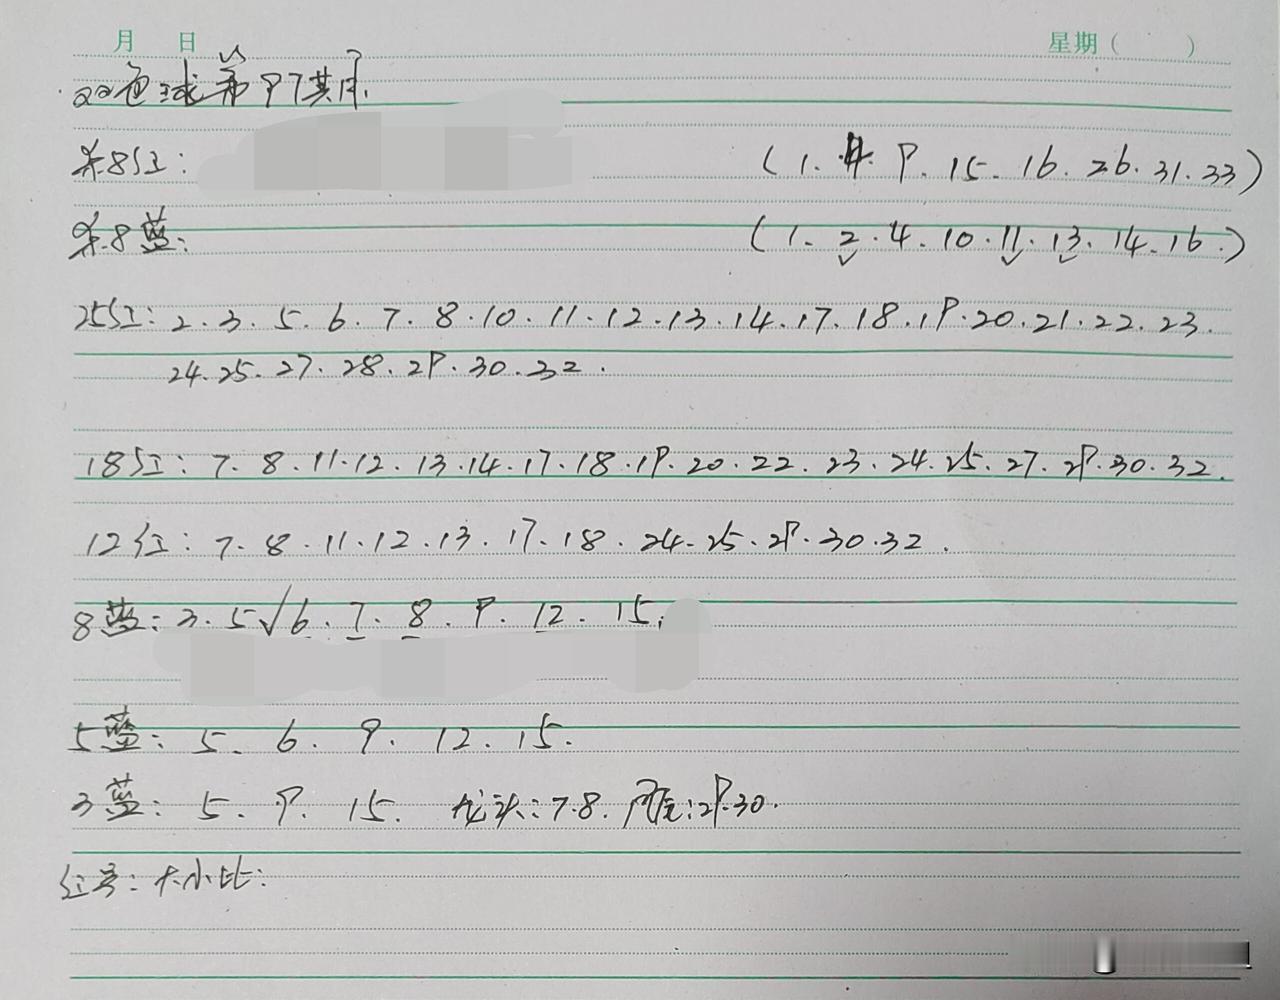 月 日 星期( )
双色球第97期.
杀8红: (1.4.9.15.16.26.31.33)
杀8蓝: (1.2.4.10.11.13.14.16.)
25红: 2.3.5.6.7.8.10.11.12.13.14.17.18.19.20.21.22.23.
24.25.27.28.29.30.32.
18红: 7.8.11.12.13.14.17.18.19.20.22.23.24.25.27.29.30.32.
12红: 7.8.11.12.13.17.18.24.25.29.30.32.
8蓝: 3.5√6.7.8.9.12.15.
5蓝: 5.6.9.12.15.
3蓝: 5.9.15. 龙头:7.8. 凤尾:29.30.
红号:大小比: